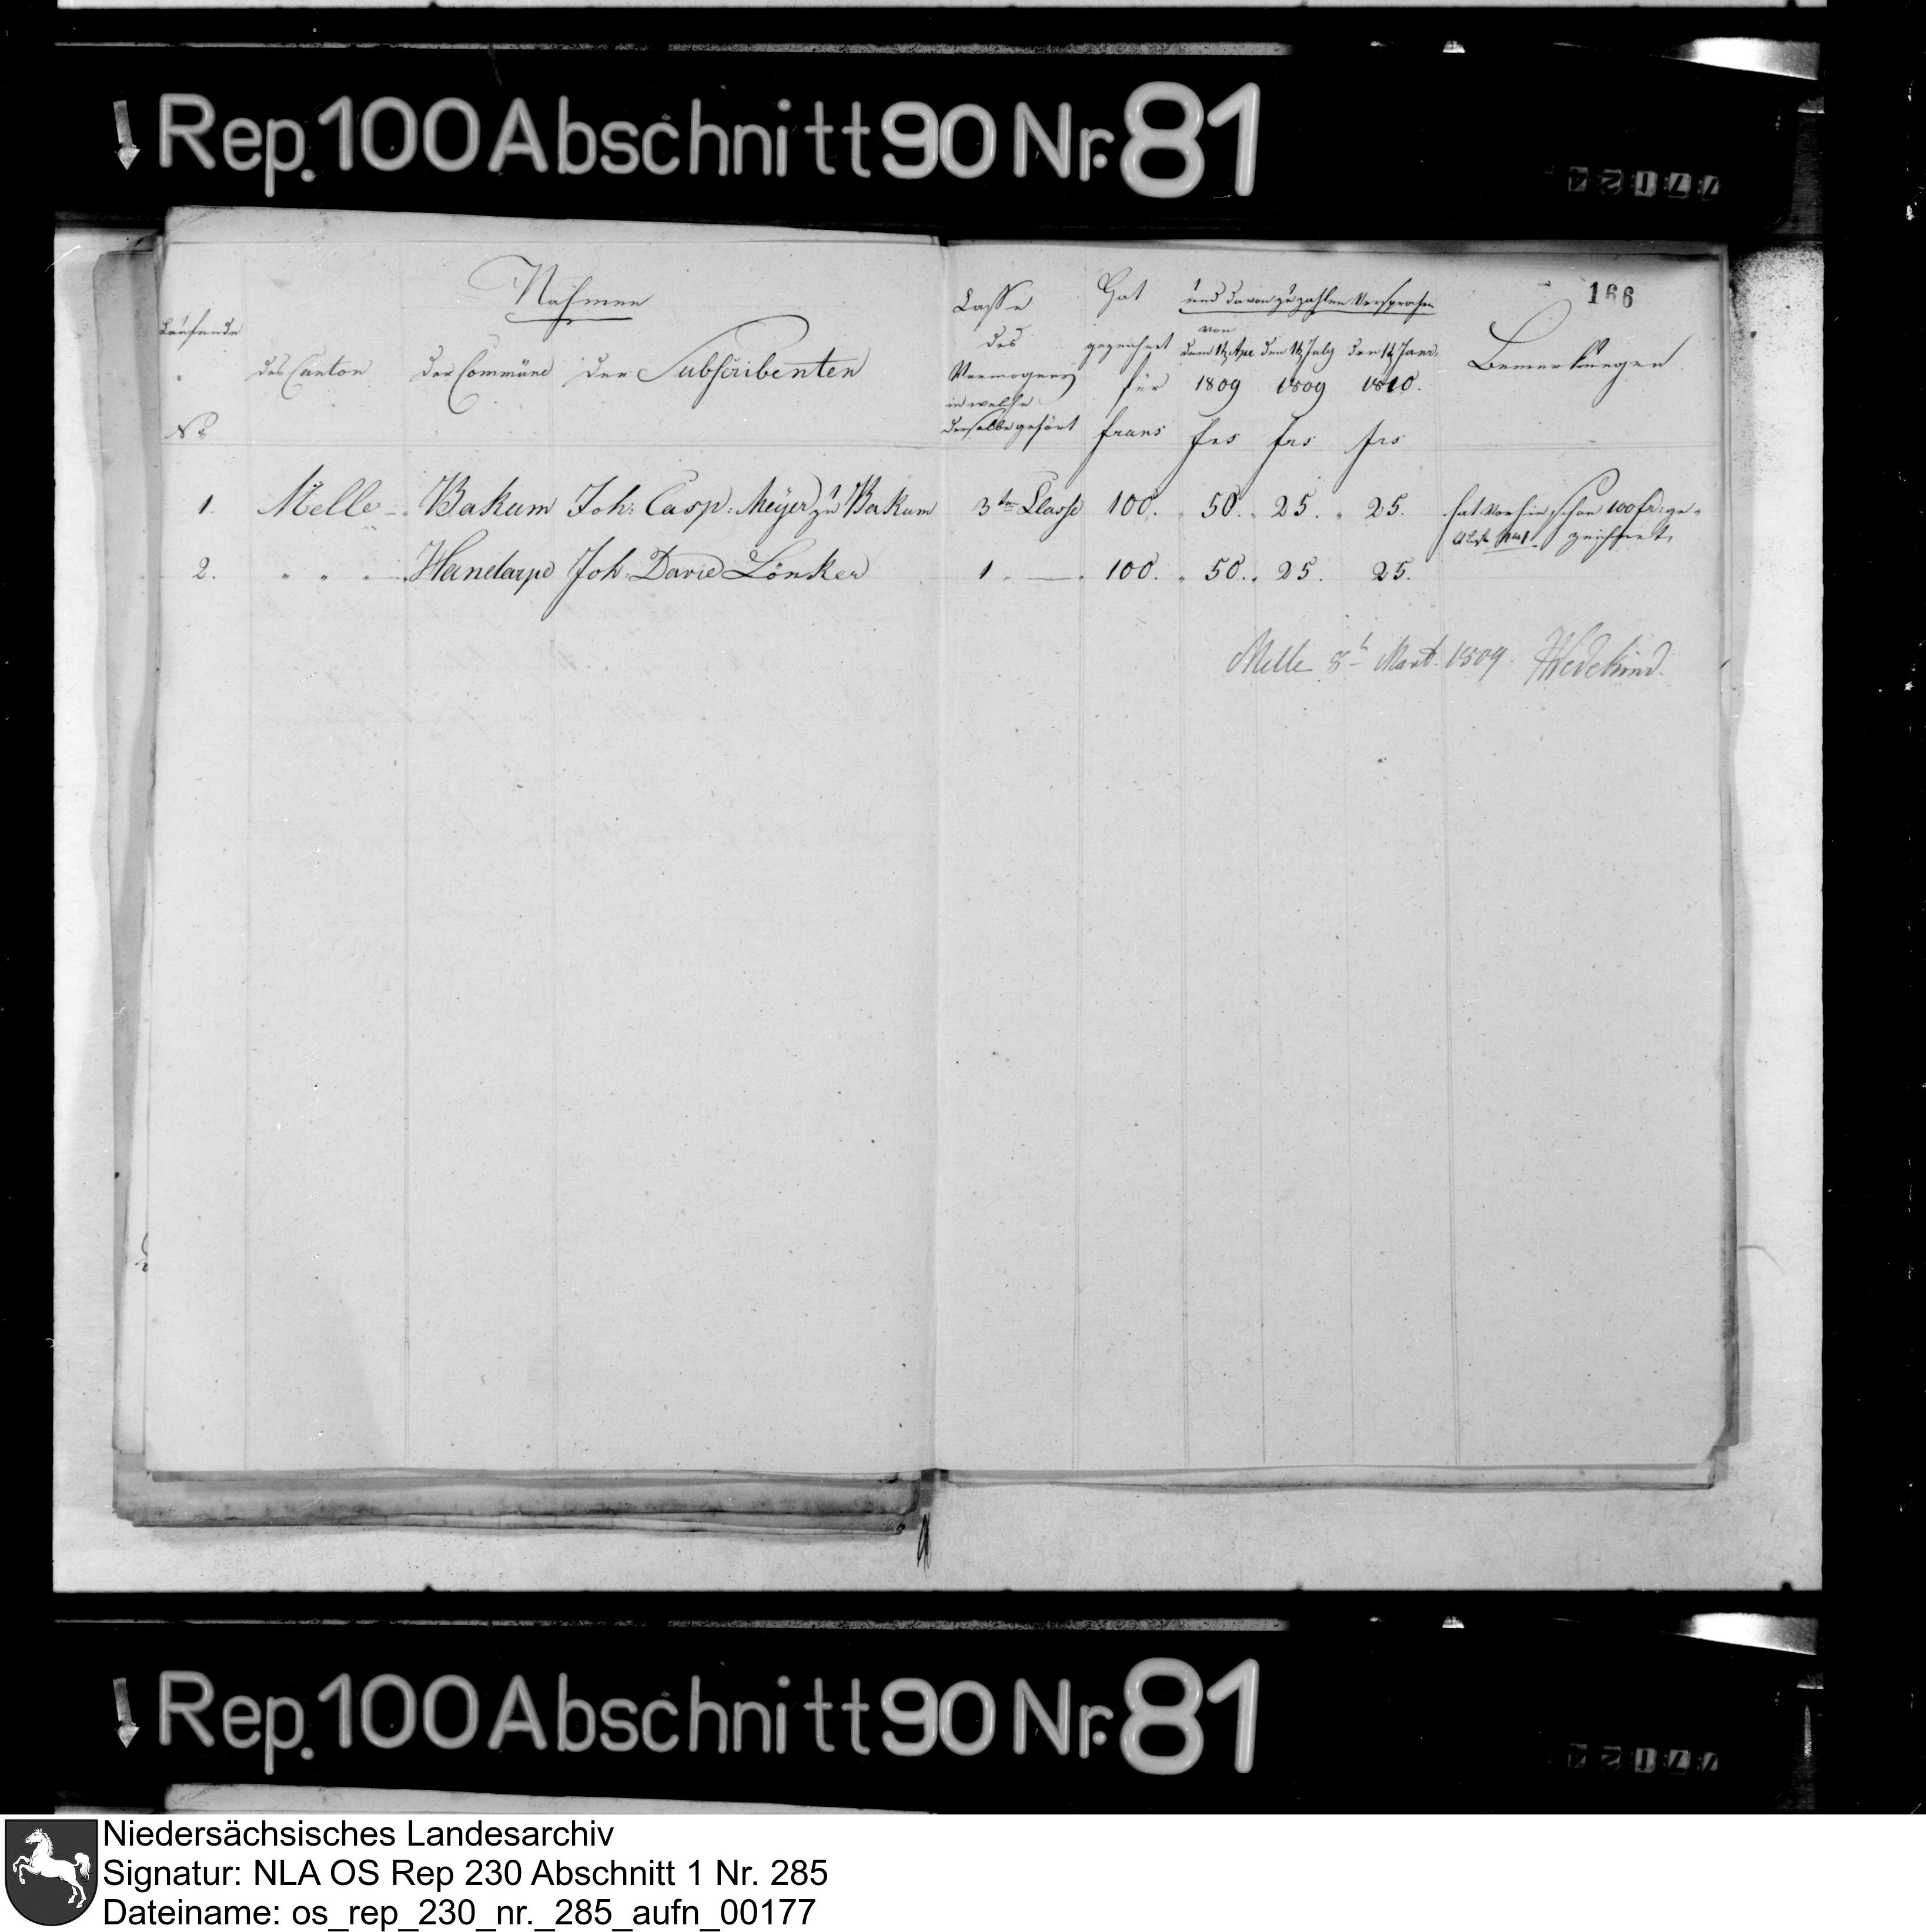 Rep.100 Abschnitt 90 Nr. 81
77124
166
Nahmen
Laufende
No
des Canton
der Commüne
der Subscribenten
Classe
des
Vermögens
in welche
derselbe gehört
Hat
gezeichnet
für
francs
und davon zu zahlen versprochen
von
dem 1t Apr. den 1t July den 1t Janr.
1809 1809 1810.
frs frs frs
Bemerkungen
1. Melle Bakum Joh: Casp: Meÿer zu Bakum 3te Classe 100. 50. 25. 25. hat vorhin schon 100 fr: ge-
zeichnet.
2. " " " Handarpe Joh. David Lönker 1. — 100. 50. 25. 25.
Melle 8t Mart. 1809. Wedekind.
Rep.100 Abschnitt 90 Nr. 81
77124
Niedersächsisches Landesarchiv
Signatur: NLA OS Rep 230 Abschnitt 1 Nr. 285
Dateiname: os_rep_230_nr._285_aufn_00177